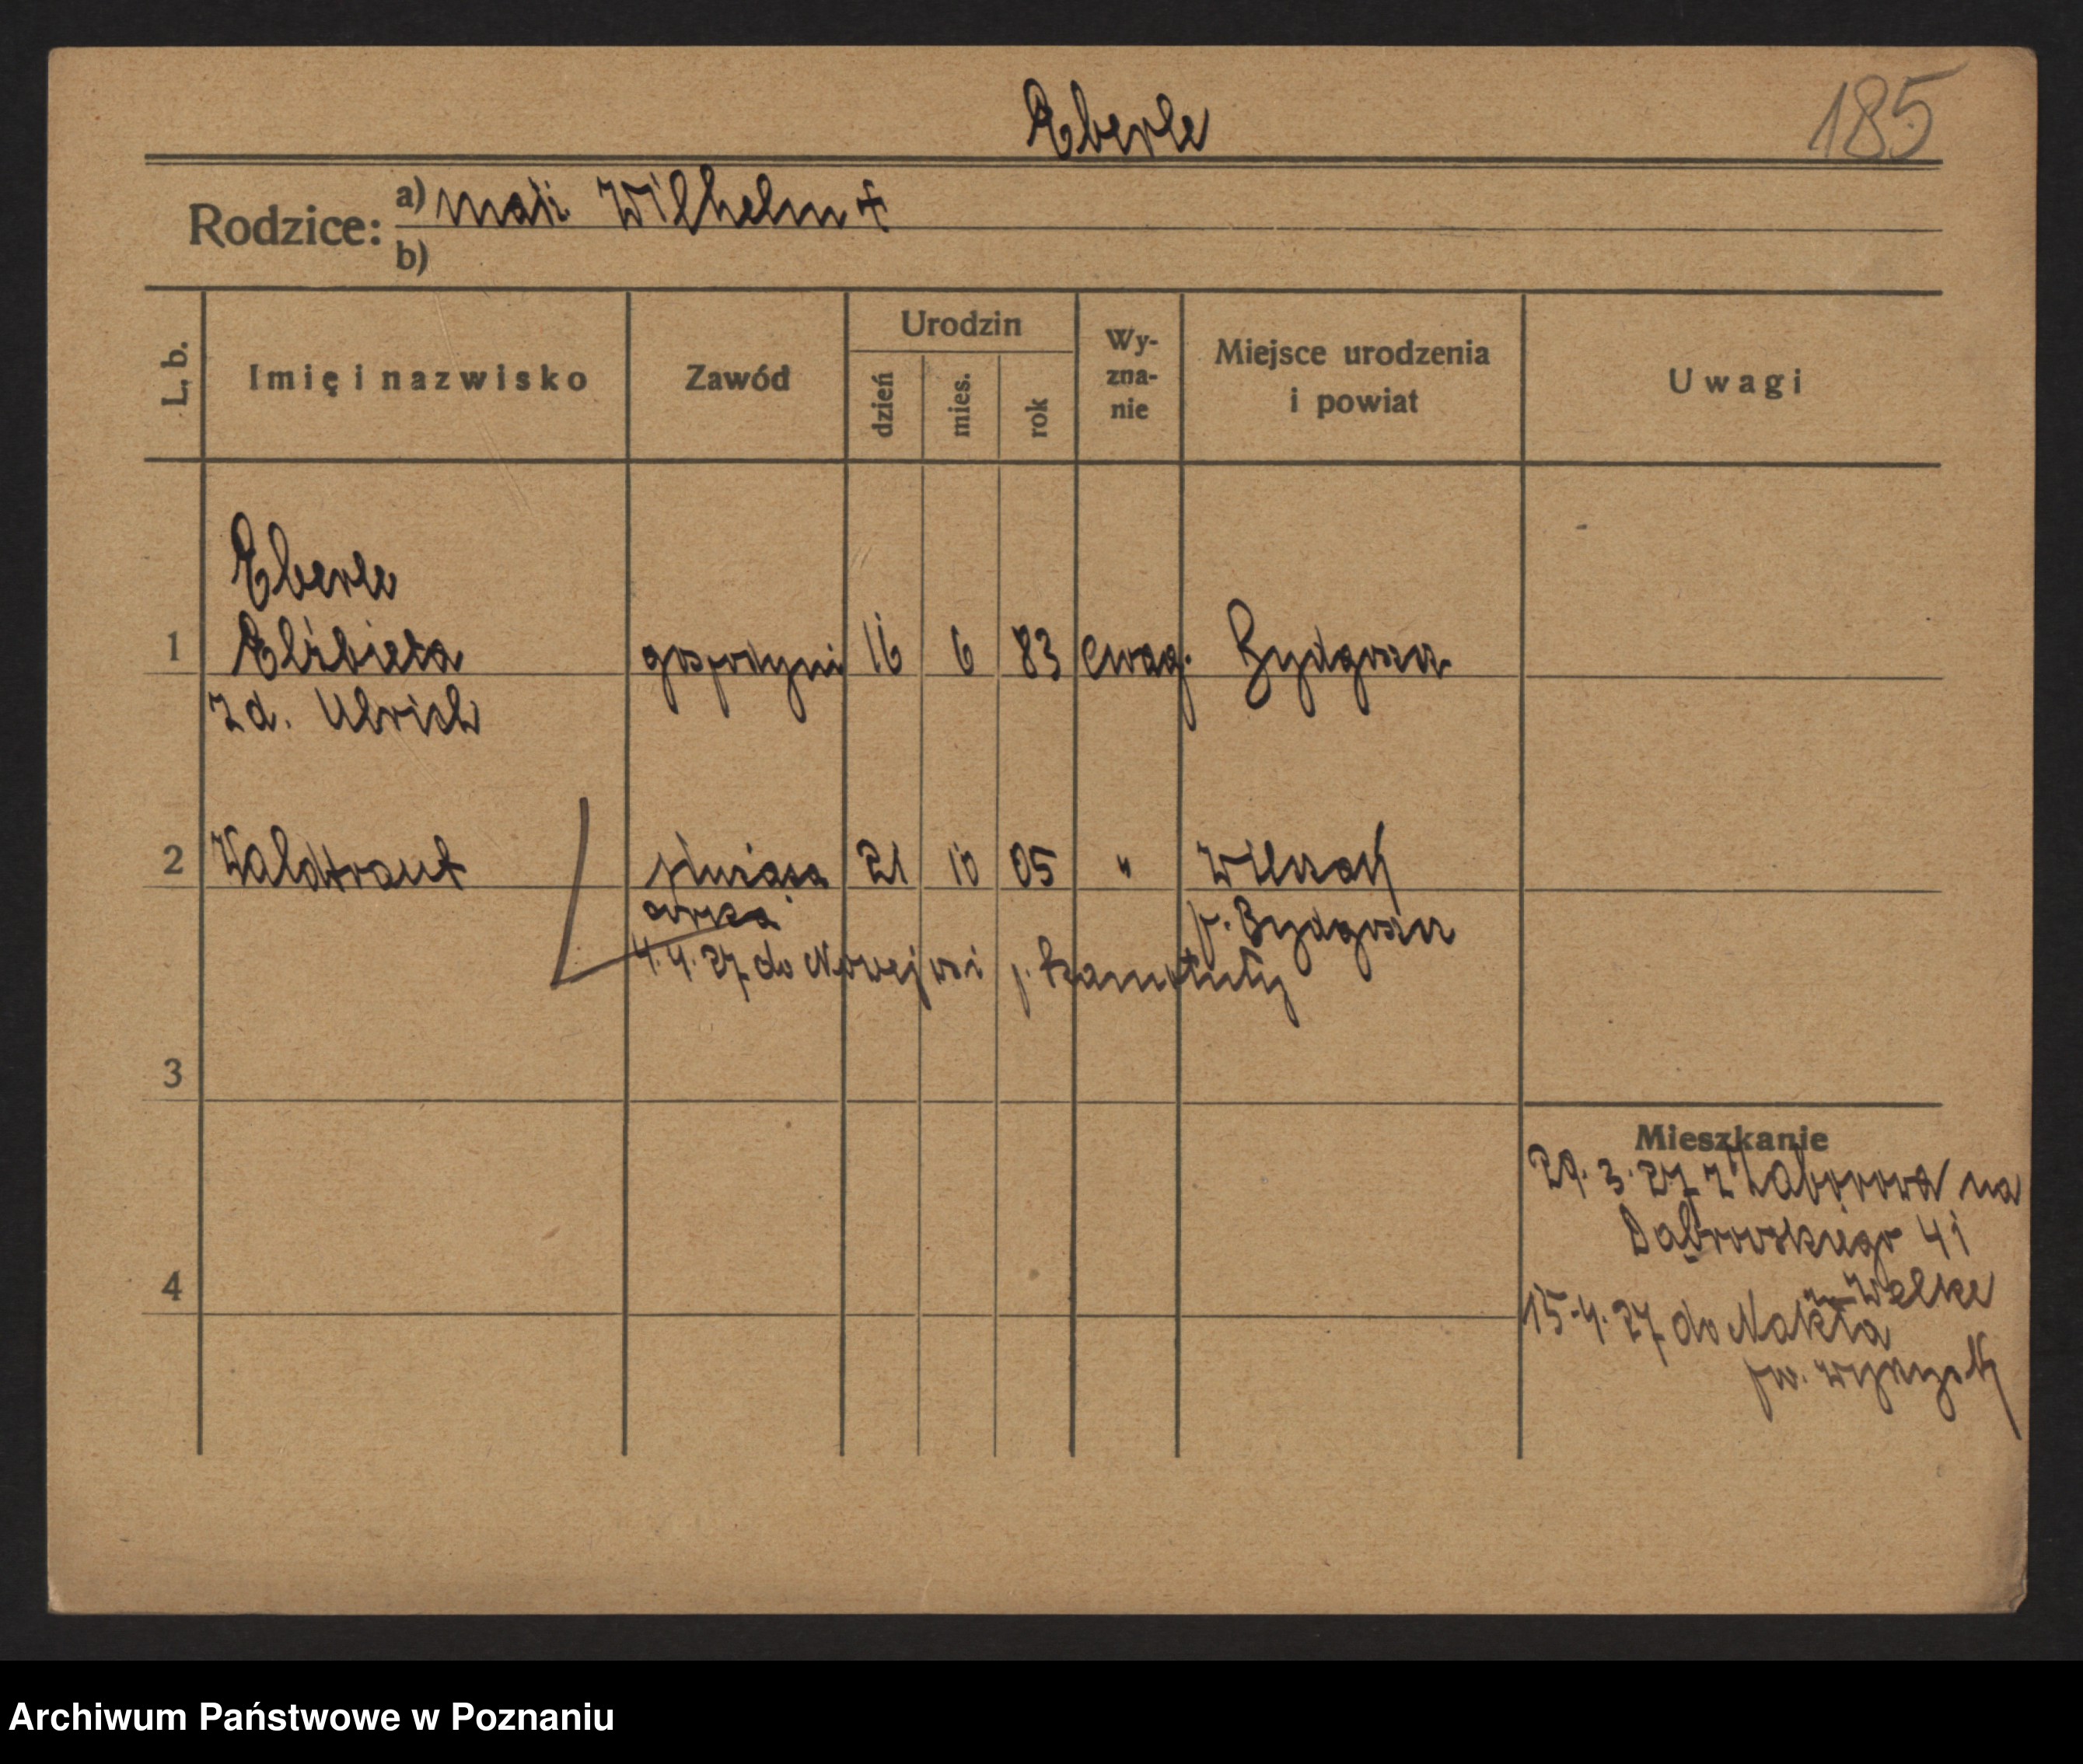 Eberle
185
Rodzice:
a) mąż Wilhelm +
b)
L. b.
Imię i nazwisko
Zawód
Urodzin
dzień
mies.
rok
Wy-
zna-
nie
Miejsce urodzenia
i powiat
Uwagi
Eberle
1 Elżbieta gospodyni 16 6 83 ewag. Bydgoszcz
zd. Ulrich
2 Waldtraut służąca 21 10 05 " Wilczak
córka p. Bydgoszcz
4.4.27 do Nowejwsi p. Szamotuły
3
Mieszkanie
29.3.27 z Zaborowa na
Dąbrowskiego 41
4
u Welke
15.4.27 do Nakła
pw. Wyrzysk
Archiwum Państwowe w Poznaniu